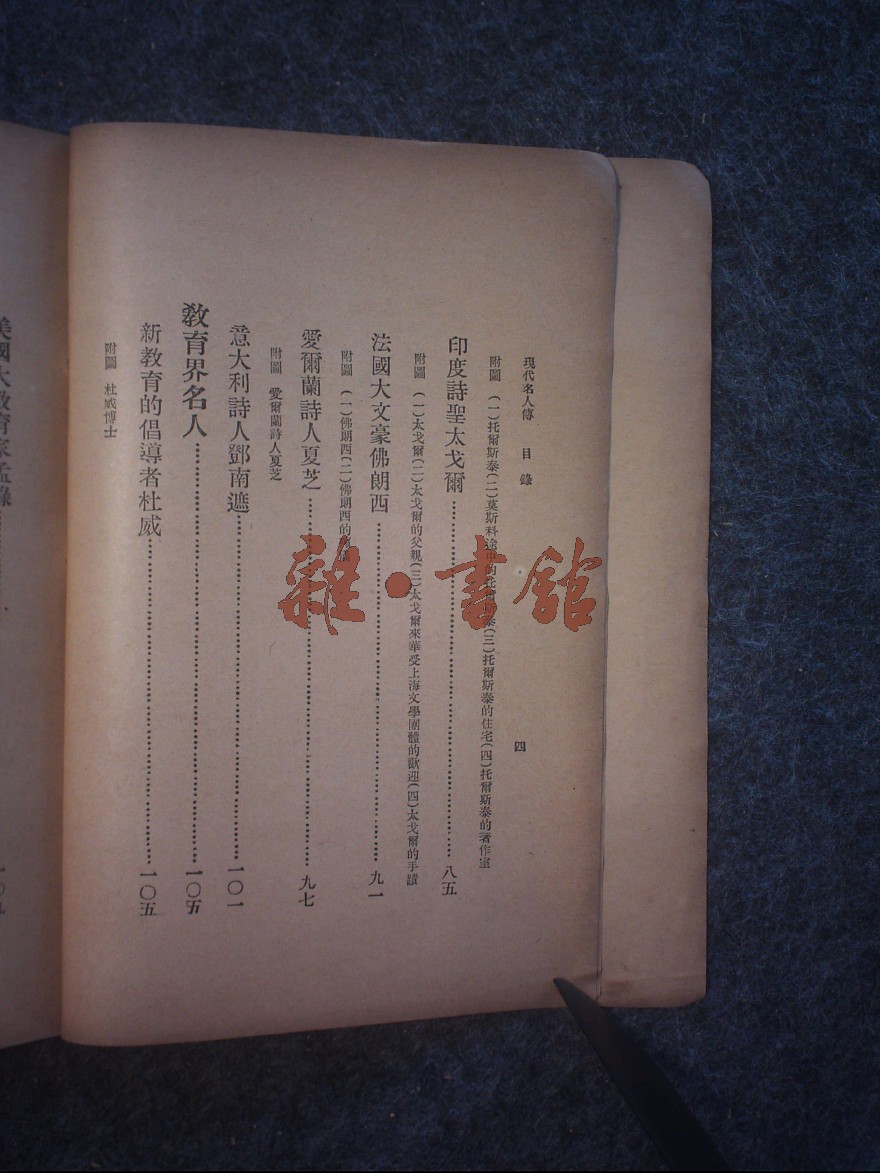 現代名人傳 目錄
四
附圖 (一)托爾斯泰(二)莫斯科途中的托爾斯泰(三)托爾斯泰的住宅(四)托爾斯泰的著作室
印度詩聖太戈爾……八五
附圖 (一)太戈爾(二)太戈爾的父親(三)太戈爾來華受上海文學團體的歡迎(四)太戈爾的手蹟
法國大文豪佛朗西……九一
附圖 (一)佛朗西(二)佛朗西的
愛爾蘭詩人夏芝……九七
附圖 愛爾蘭詩人夏芝
意大利詩人鄧南遮……一〇一
教育界名人……一〇五
新教育的倡導者杜威……一〇五
附圖 杜威博士
美國大教育家孟祿……一〇九
雜·書館